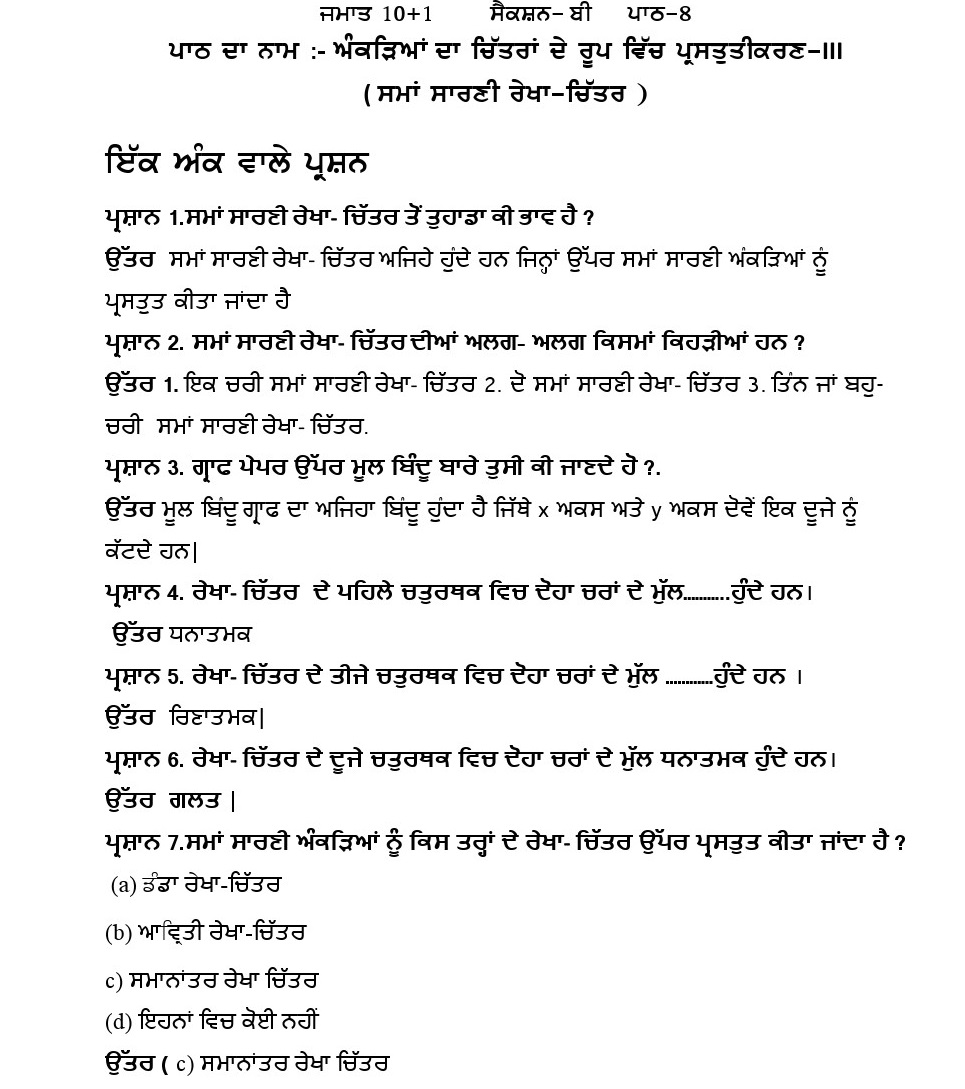 ਜਮਾਤ 10+1 ਸੈਕਸ਼ਨ– ਬੀ ਪਾਠ–8
ਪਾਠ ਦਾ ਨਾਮ :- ਅੰਕੜਿਆਂ ਦਾ ਚਿੱਤਰਾਂ ਦੇ ਰੂਪ ਵਿੱਚ ਪ੍ਰਸਤੁਤੀਕਰਣ–III
( ਸਮਾਂ ਸਾਰਣੀ ਰੇਖਾ–ਚਿੱਤਰ )
ਇੱਕ ਅੰਕ ਵਾਲੇ ਪ੍ਰਸ਼ਨ
ਪ੍ਰਸ਼ਾਨ 1.ਸਮਾਂ ਸਾਰਣੀ ਰੇਖਾ- ਚਿੱਤਰ ਤੋਂ ਤੁਹਾਡਾ ਕੀ ਭਾਵ ਹੈ ?
ਉੱਤਰ ਸਮਾਂ ਸਾਰਣੀ ਰੇਖਾ- ਚਿੱਤਰ ਅਜਿਹੇ ਹੁੰਦੇ ਹਨ ਜਿਨ੍ਹਾਂ ਉੱਪਰ ਸਮਾਂ ਸਾਰਣੀ ਅੰਕੜਿਆਂ ਨੂੰ
ਪ੍ਰਸਤੁਤ ਕੀਤਾ ਜਾਂਦਾ ਹੈ
ਪ੍ਰਸ਼ਾਨ 2. ਸਮਾਂ ਸਾਰਣੀ ਰੇਖਾ- ਚਿੱਤਰ ਦੀਆਂ ਅਲਗ- ਅਲਗ ਕਿਸਮਾਂ ਕਿਹੜੀਆਂ ਹਨ ?
ਉੱਤਰ 1. ਇਕ ਚਰੀ ਸਮਾਂ ਸਾਰਣੀ ਰੇਖਾ- ਚਿੱਤਰ 2. ਦੋ ਸਮਾਂ ਸਾਰਣੀ ਰੇਖਾ- ਚਿੱਤਰ 3. ਤਿੰਨ ਜਾਂ ਬਹੁ-
ਚਰੀ ਸਮਾਂ ਸਾਰਣੀ ਰੇਖਾ- ਚਿੱਤਰ.
ਪ੍ਰਸ਼ਾਨ 3. ਗ੍ਰਾਫ ਪੇਪਰ ਉੱਪਰ ਮੂਲ ਬਿੰਦੂ ਬਾਰੇ ਤੁਸੀ ਕੀ ਜਾਣਦੇ ਹੋ ?.
ਉੱਤਰ ਮੂਲ ਬਿੰਦੂ ਗ੍ਰਾਫ ਦਾ ਅਜਿਹਾ ਬਿੰਦੂ ਹੁੰਦਾ ਹੈ ਜਿੱਥੇ x ਅਕਸ ਅਤੇ y ਅਕਸ ਦੋਵੇਂ ਇਕ ਦੂਜੇ ਨੂੰ
ਕੱਟਦੇ ਹਨ|
ਪ੍ਰਸ਼ਾਨ 4. ਰੇਖਾ- ਚਿੱਤਰ ਦੇ ਪਹਿਲੇ ਚਤੁਰਥਕ ਵਿਚ ਦੋਹਾ ਚਰਾਂ ਦੇ ਮੁੱਲ...........ਹੁੰਦੇ ਹਨ।
ਉੱਤਰ ਧਨਾਤਮਕ
ਪ੍ਰਸ਼ਾਨ 5. ਰੇਖਾ- ਚਿੱਤਰ ਦੇ ਤੀਜੇ ਚਤੁਰਥਕ ਵਿਚ ਦੋਹਾ ਚਰਾਂ ਦੇ ਮੁੱਲ ............ਹੁੰਦੇ ਹਨ ।
ਉੱਤਰ ਰਿਣਾਤਮਕ|
ਪ੍ਰਸ਼ਾਨ 6. ਰੇਖਾ- ਚਿੱਤਰ ਦੇ ਦੂਜੇ ਚਤੁਰਥਕ ਵਿਚ ਦੋਹਾ ਚਰਾਂ ਦੇ ਮੁੱਲ ਧਨਾਤਮਕ ਹੁੰਦੇ ਹਨ।
ਉੱਤਰ ਗਲਤ |
ਪ੍ਰਸ਼ਾਨ 7.ਸਮਾਂ ਸਾਰਣੀ ਅੰਕੜਿਆਂ ਨੂੰ ਕਿਸ ਤਰ੍ਹਾਂ ਦੇ ਰੇਖਾ- ਚਿੱਤਰ ਉੱਪਰ ਪ੍ਰਸਤੁਤ ਕੀਤਾ ਜਾਂਦਾ ਹੈ ?
(a) ਡੰਡਾ ਰੇਖਾ-ਚਿੱਤਰ
(b) ਆਵ੍ਰਿਤੀ ਰੇਖਾ-ਚਿੱਤਰ
c) ਸਮਾਨਾਂਤਰ ਰੇਖਾ ਚਿੱਤਰ
(d) ਇਹਨਾਂ ਵਿਚ ਕੋਈ ਨਹੀਂ
ਉੱਤਰ ( c) ਸਮਾਨਾਂਤਰ ਰੇਖਾ ਚਿੱਤਰ